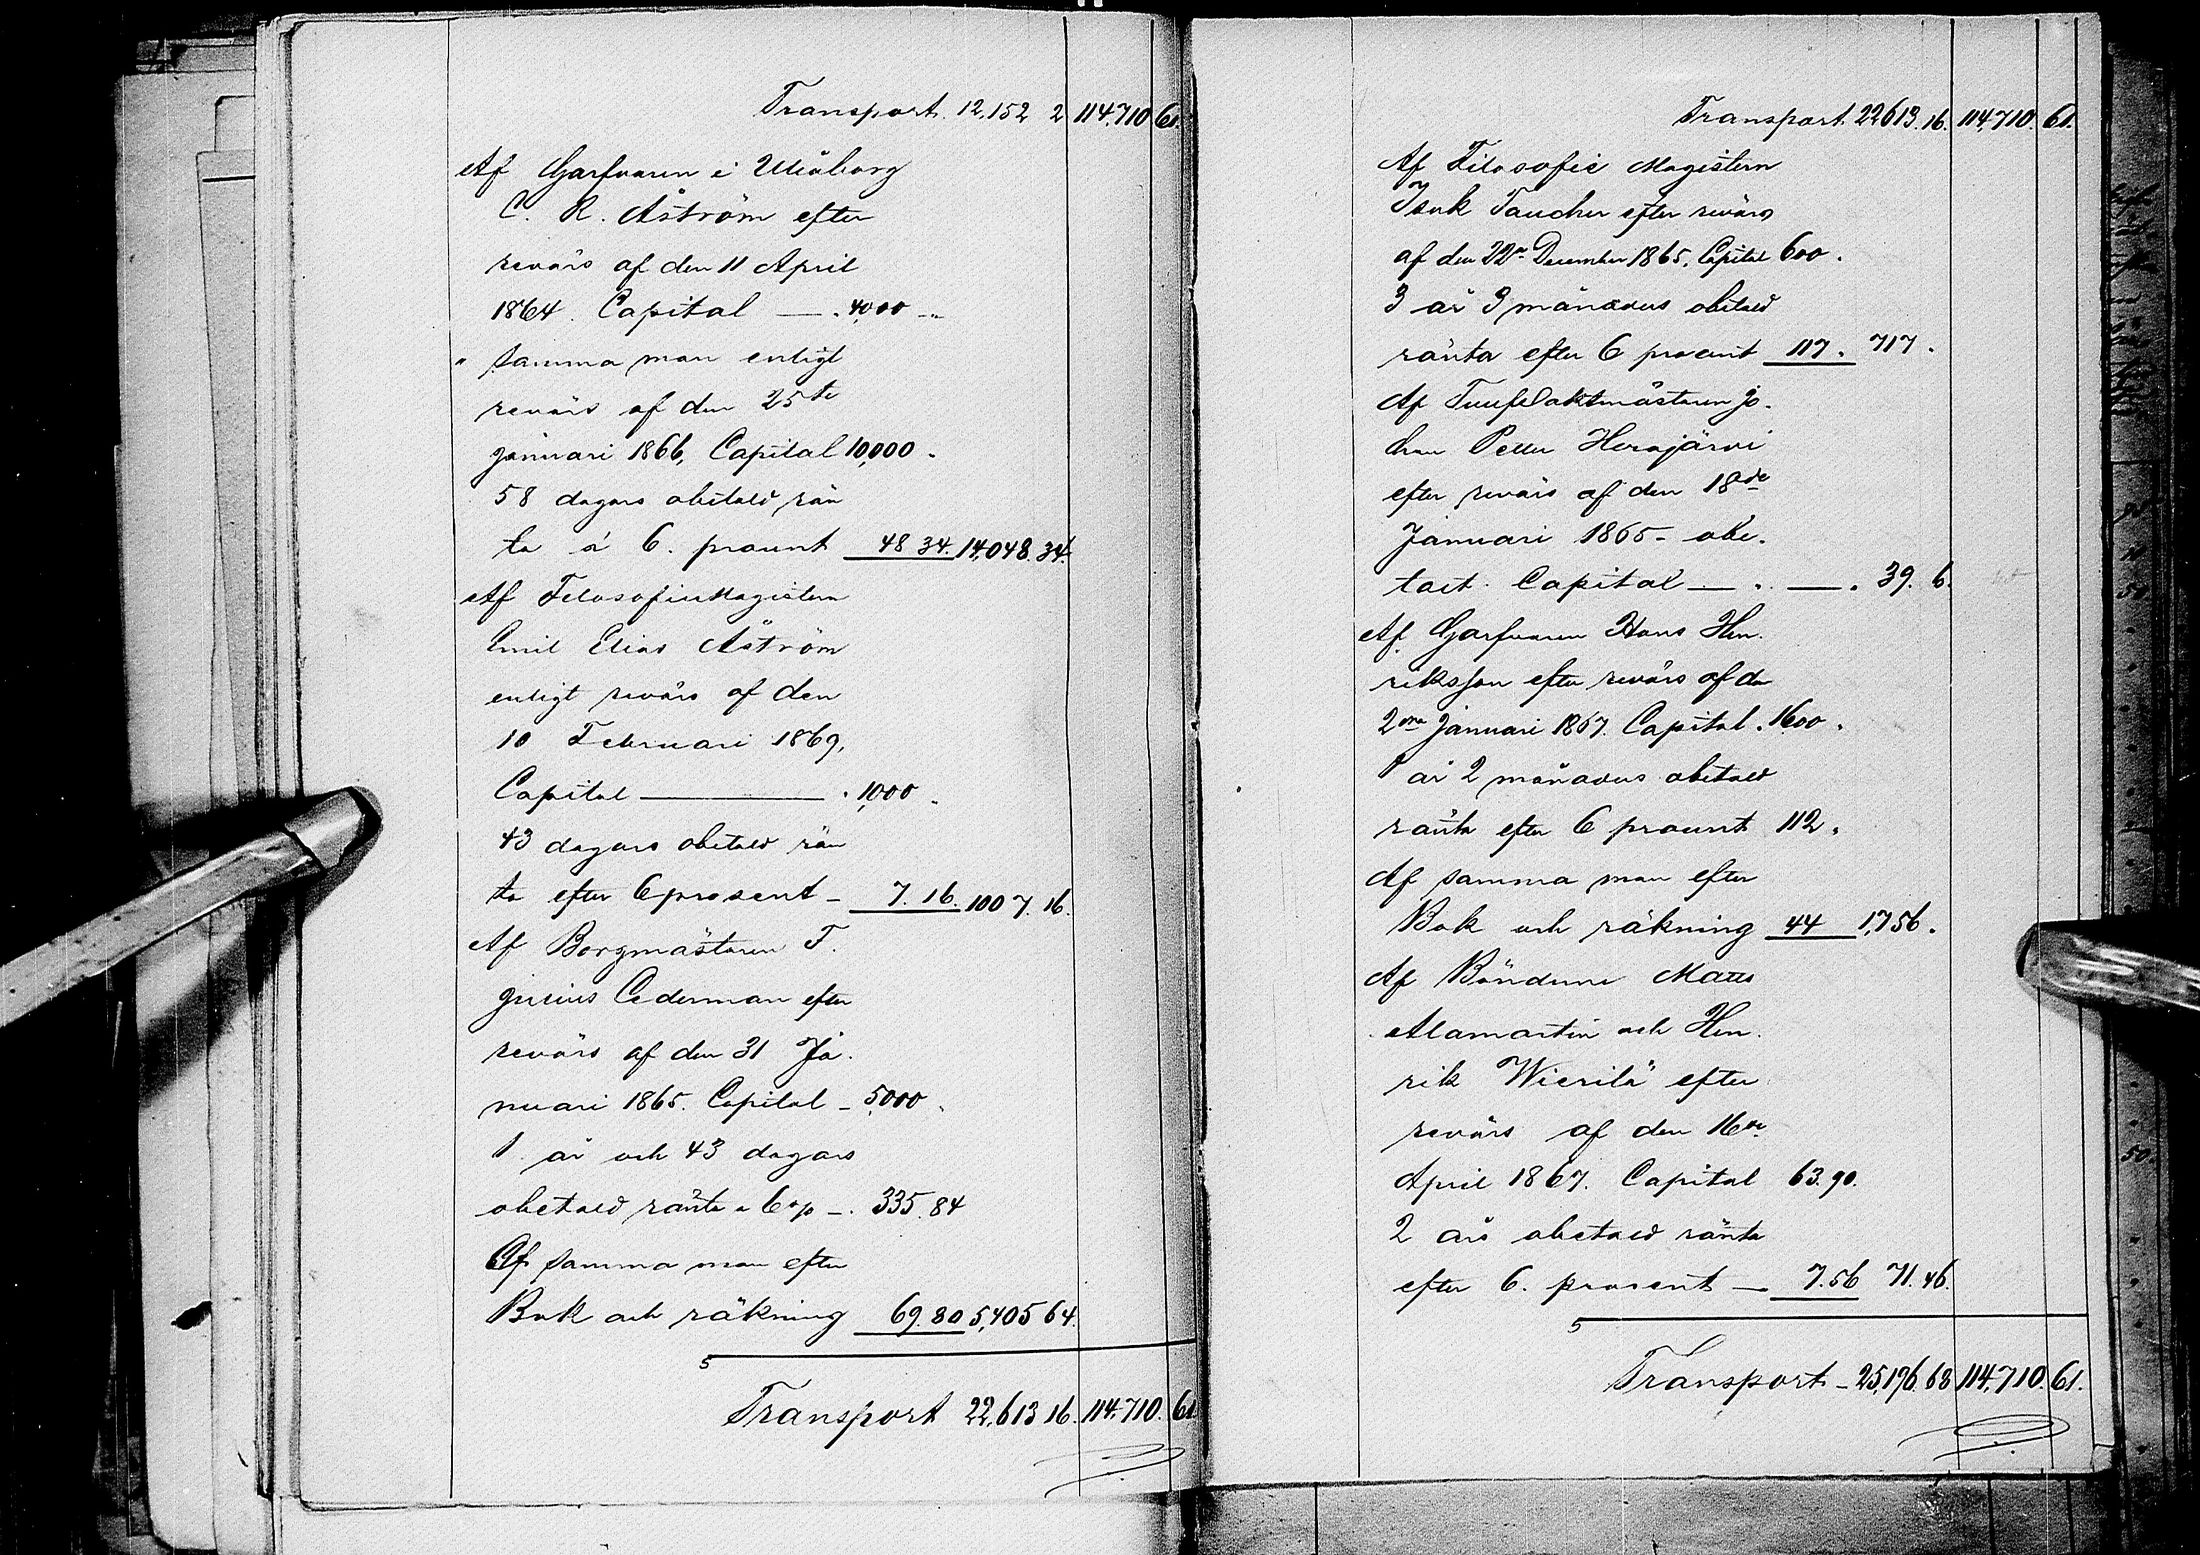 Transport. 12,152 2 114,710 61.
Af Garfvaren i Uleåborg
C. R. Åström efter
revärs af den 11 April
1864. Capital — . 4000 —
" samma man enligt
revärs af den 25te
januari 1866, Capital 10,000 .
58 dagars obetald rän
ta á 6. procent 48 34. 14,048. 34.
Af Filosofie Magistern
Emil Elias Åström
enligt revärs af den
10 Februari 1869,
Capital — . 1,000 .
43 dagars obetald rän
ta efter 6 prosent — 7. 16. 1007. 16.
Af Borgmästaren F.
Cederman efter
revärs af den 31 Ja.
nuari 1865. Capital — 5,000 .
1 år och 43 dagars
obetald ränta a 6 op —. 335. 84
Af samma man efter
Bok och räkning 69. 80 5,405 64.
5
Transport 22,613 16. 114,710. 61.
Transport. 22613. 16. 114,710. 61.
Af Filosofie Magistern
Isak Taucher efter revärs
af den 22a December 1865. Capital 600 .
3 år 3 månaders obetald
ränta efter 6 procent 117. 717 .
Af Jo.
han Petter Herajärvi
efter revärs af den 18de
Januari 1865 - obe.
talt. Capital — . — . 39. 6.
Af Garfvaren Hans Hen.
riksson efter revärs af den
2dra Januari 1867. Capital . 1600 .
1 år 2 månaders obetald
ränta efter 6 procent 112 .
Af samma man efter
Bok och räkning 44 1,756 .
Af Bönderne Matts
Alamartin och Hen.
rik Wierilä efter
revärs af den 16de
April 1867. Capital 63. 90.
2 års obetald ränta
efter 6. prosent — 7. 56 71. 46.
5
Transport — 25,196. 68 114,710. 61.